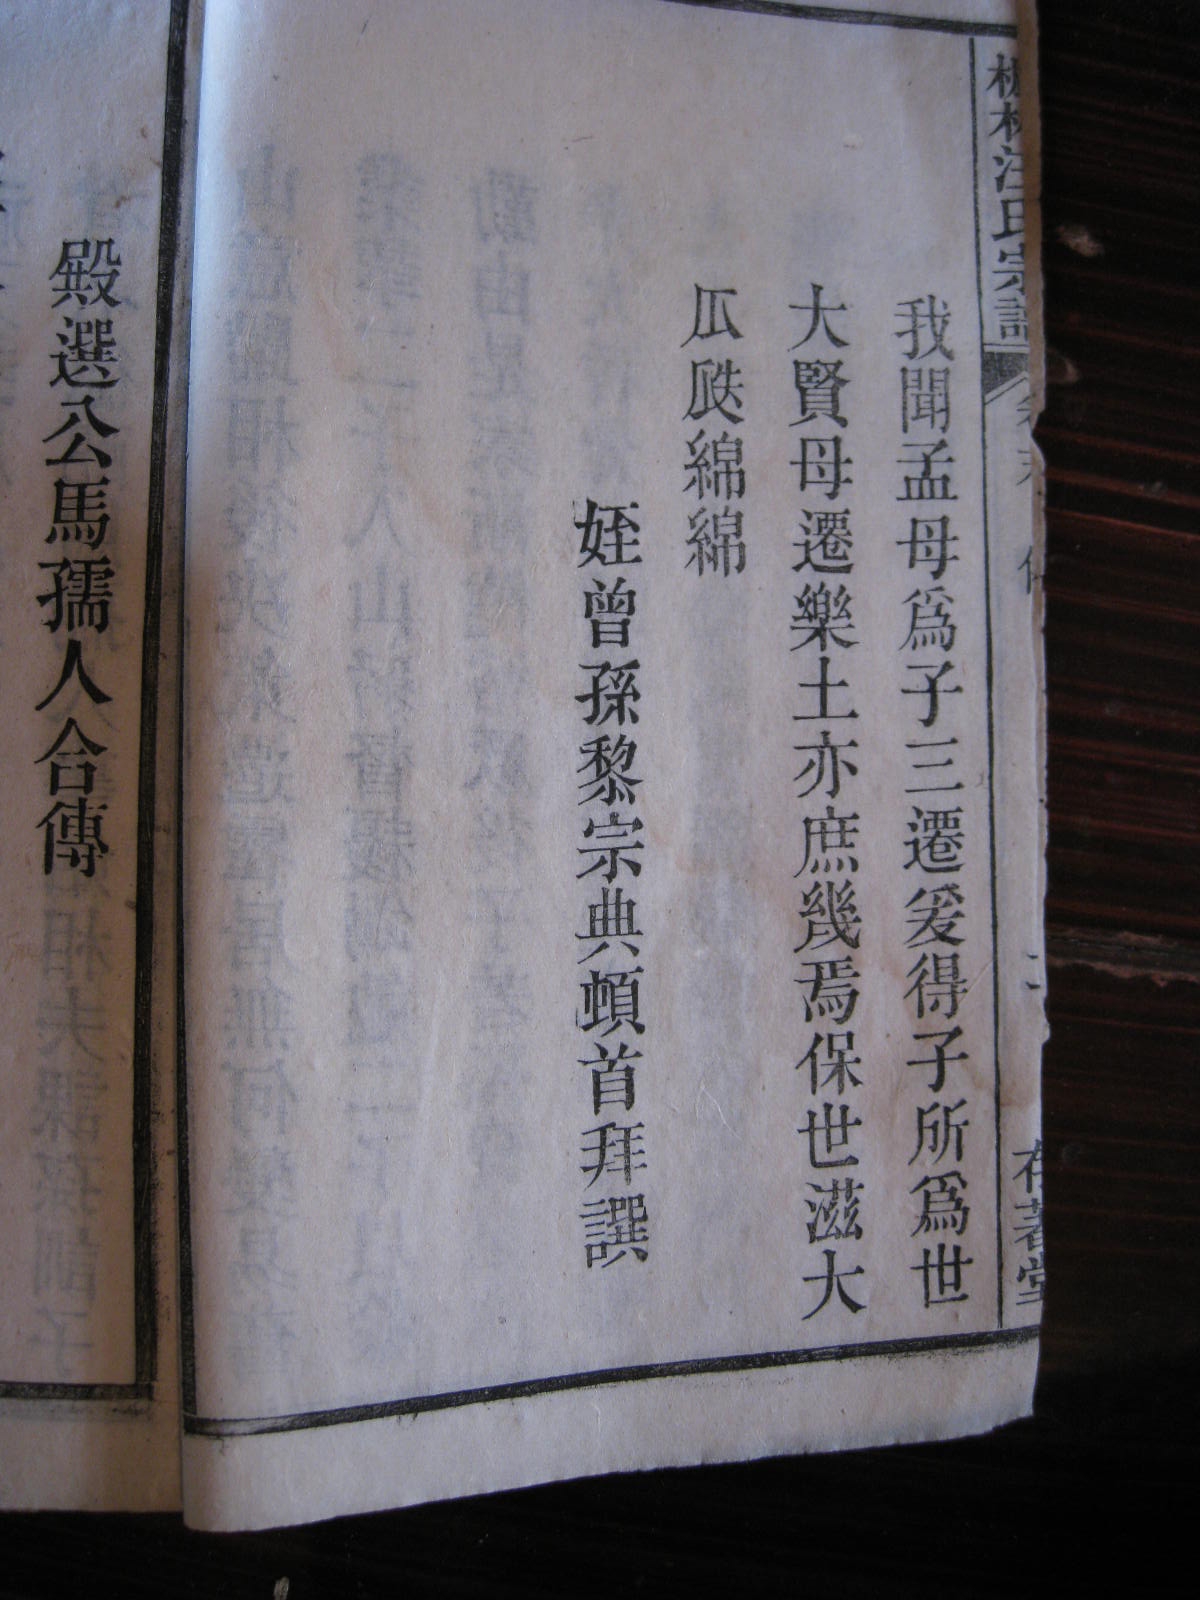 汪氏宗譜
我聞孟母爲子三遷爰得子所爲世
大賢母遷樂土亦庶幾焉保世滋大
瓜瓞綿綿
姪曾孫黎宗典頓首拜譔
殿選公馬孺人合傳